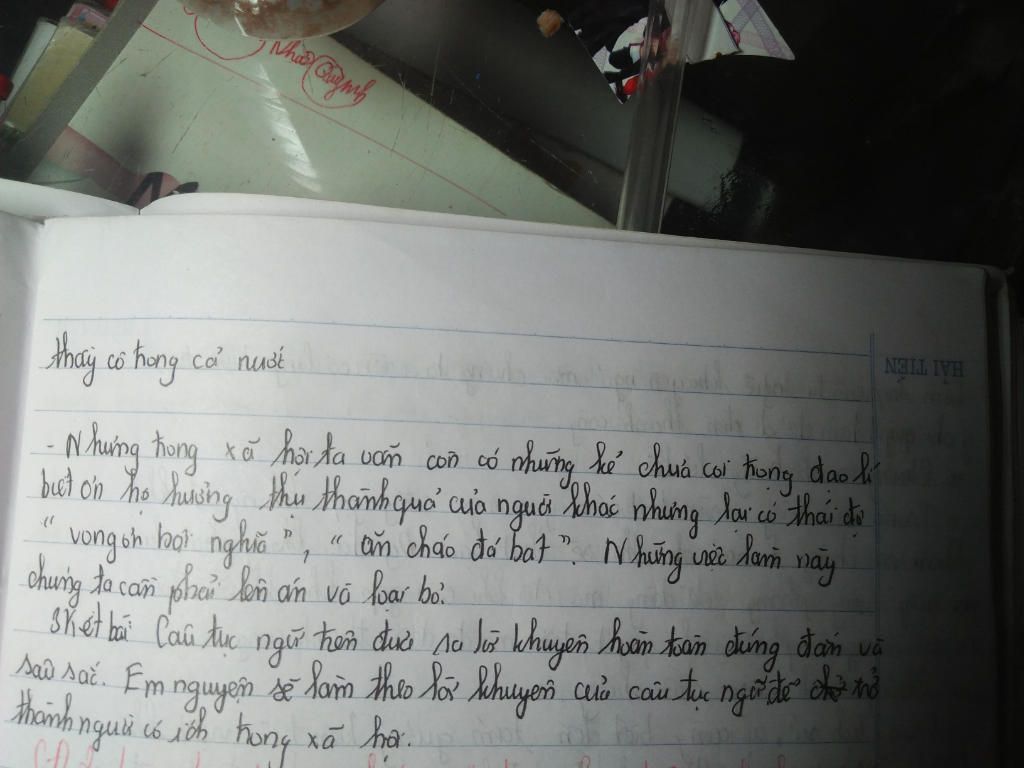 Như Quỳnh
HẢI TIẾN
thầy cô trong cả nước
- Nhưng trong xã hội ta vẫn còn có những kẻ chưa coi trọng đạo lí
biết ơn họ hưởng thụ thành quả của người khác nhưng lại có thái độ
" vong ơn bội nghĩa ", " ăn cháo đá bát ". Những việc làm này
chúng ta cần phải lên án và loại bỏ.
3Kết bài Câu tục ngữ trên đưa ra lời khuyên hoàn toàn đúng đắn và
sâu sắc. Em nguyện sẽ làm theo lời khuyên của câu tục ngữ để trở
thành người có ích trong xã hội.